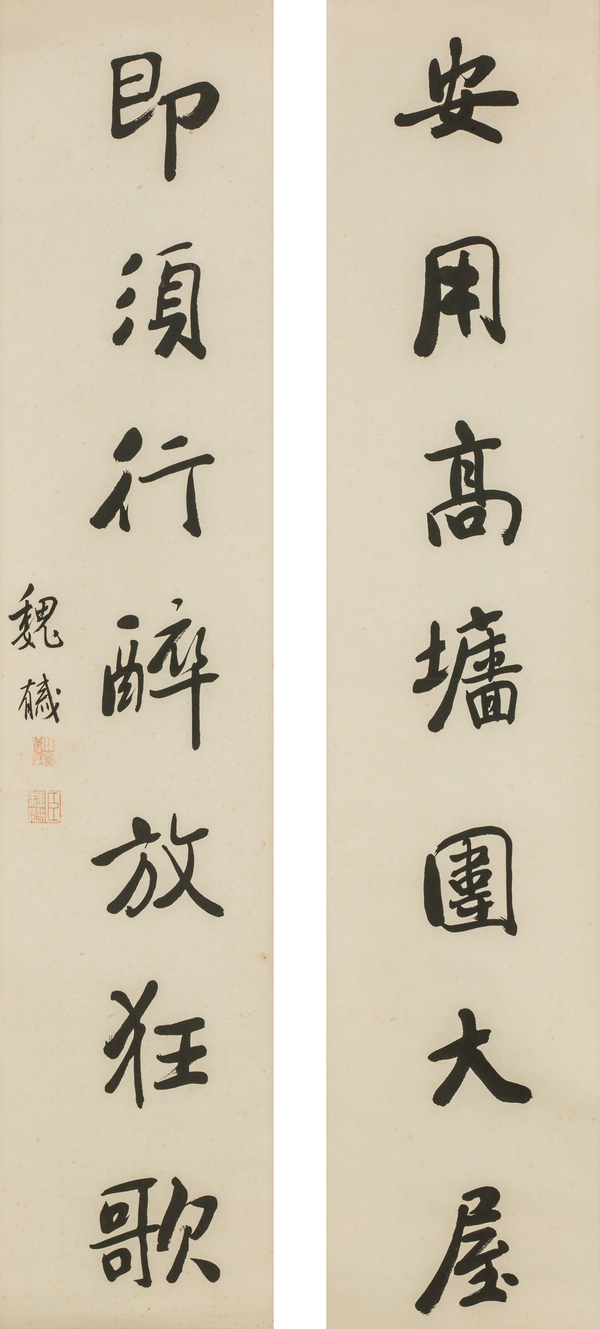 安用高墻圍大屋
即須行醉放狂歌
魏戫